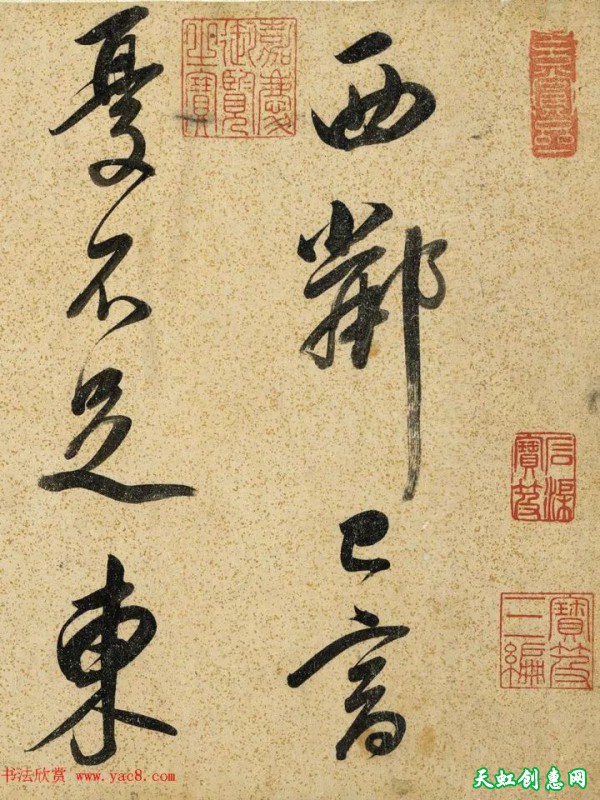 西鄰已富
憂不足東
嘉慶
御覽
之寶
石渠
寶笈
寶笈
三編
书法欣赏 www.yac8.com
天虹创惠网